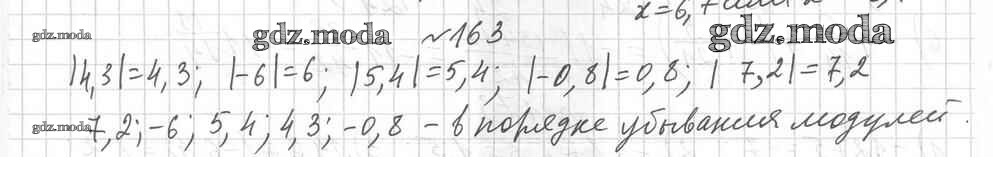 x=6,
gdz.moda gdz.moda №163 gdz.moda
|4,3|=4,3; |-6|=6; |5,4|=5,4; |-0,8|=0,8; | 7,2|=7,2
gdz.moda 7,2; -6; 5,4; 4,3; -0,8 – в порядке убывания модулей.